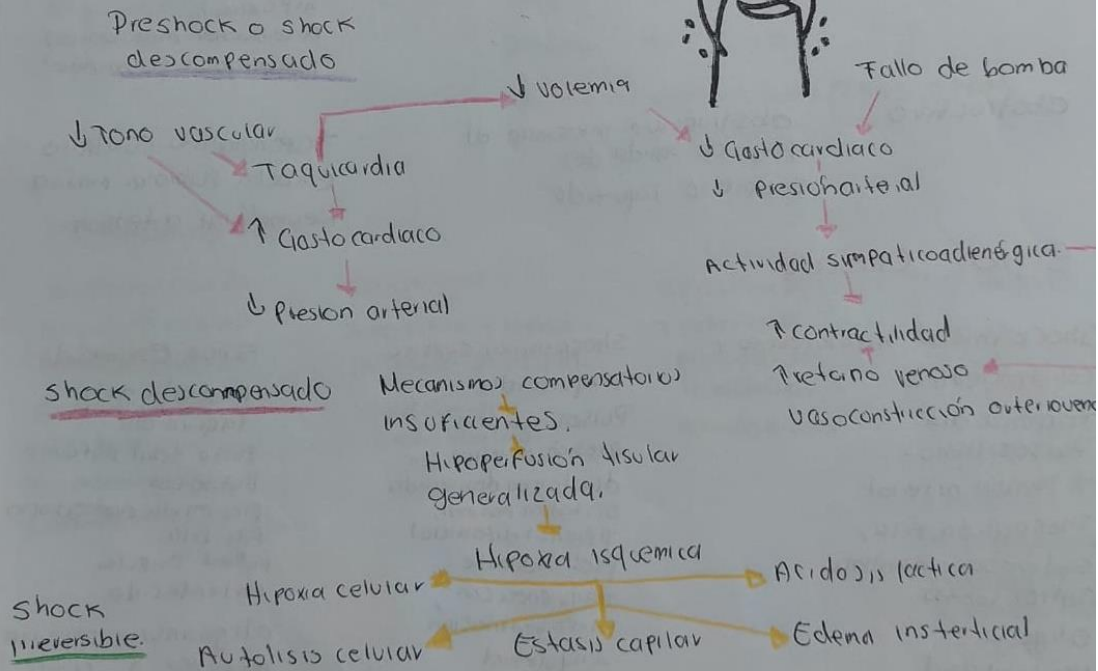 Preshock o shock
descompensado
↓ volemia
Fallo de bomba
↓ Tono vascular
Taquicardia
↑ Gasto cardiaco
↓ Presion arterial
↓ Gasto cardiaco
↓ Presion arterial
Actividad simpaticoadrenérgica
↑ contractilidad
↑ retorno venoso
vasoconstricción
shock descompensado
Mecanismos compensatorios
insuficientes.
Hipoperfusión tisular
generalizada.
Hipoxia isquemica
Hipoxia celular
Acidosis lactica
Shock
irreversible.
Autolisis celular
Estasis capilar
Edema insterticial